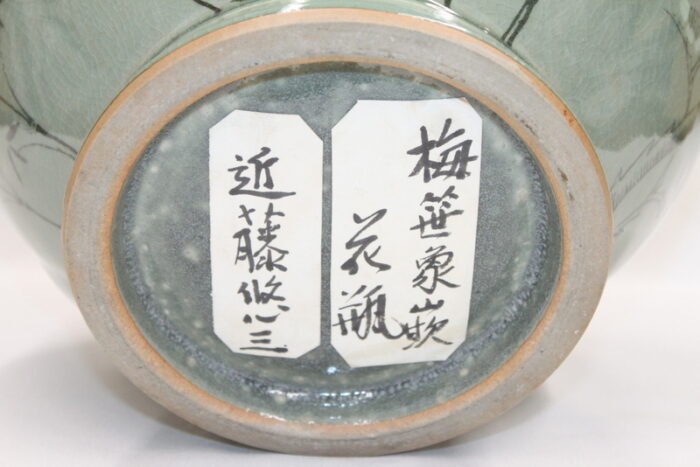 梅笹象嵌
花瓶
近藤悠三